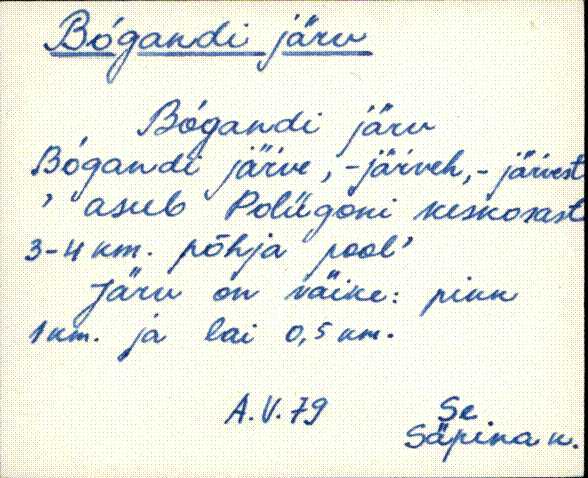 Bógandi järv
Bógandi järv
Bógandi järve, -järveh, -järvest
' asub Poliigoni keskosast
3-4 km. põhja pool'
Järv on väike: pikk
1 km. ja lai 0,5 km.
A.V.79 Se
Säpina k.